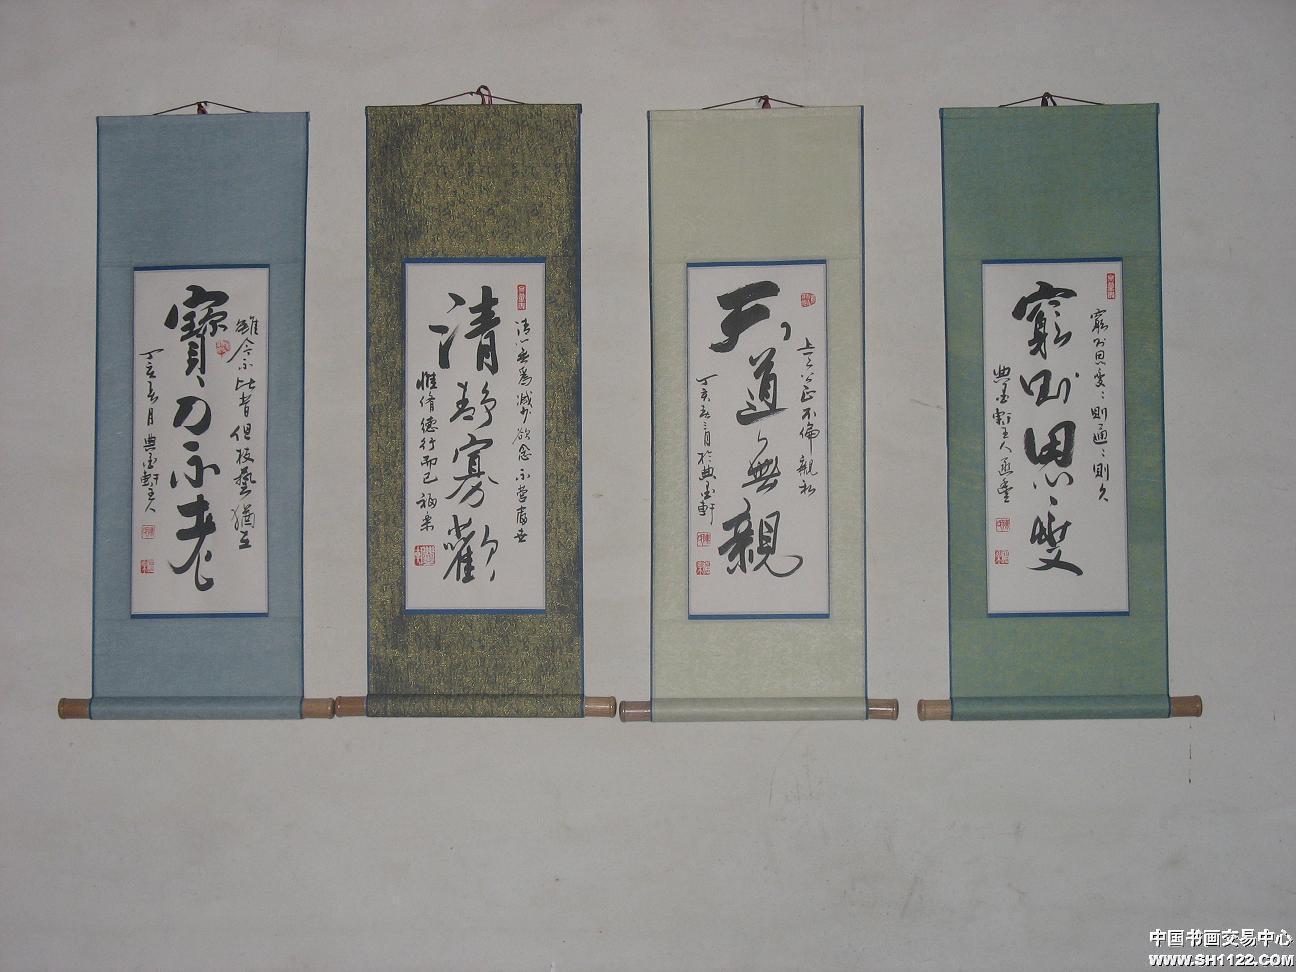 寶刀不老
雖今不比昔但技藝猶在
丁亥五月典墨軒主人
清靜寡歡
清心無為減少欲念不營
惟脩德行而已
天道無親
上天公正不偏親私
丁亥五月於典墨軒
窮則思變
窮則思變變則通通則久
典墨軒主人
中国书画交易中心
WWW.SH1122.COM